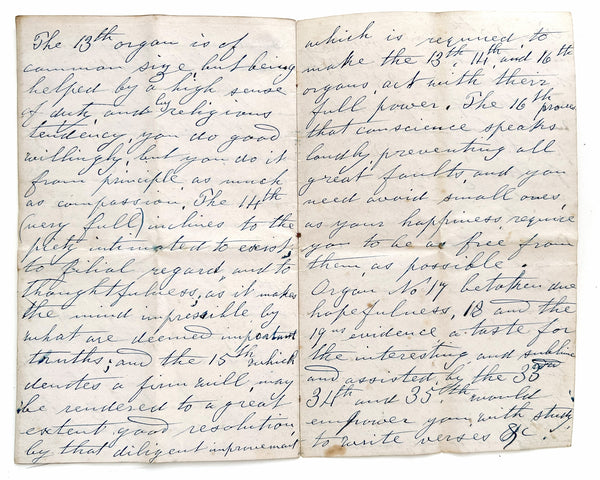 The 13th organ is of
common size, but being
helped by a high sense
of duty, and by religious
tendency you do good
willingly, but you do it
from principle as much
as compassion. The 14th
(very full) inclines to the
piety, to exist,
to filial regard, and to
thoughtfulness, as it makes
the mind impressible by
what are deemed important
truths; and the 15th which
denotes a firm will, may
be rendered to a great
extent good resolution
by that diligent improvement
which is required to
make the 13th, 14th, and 16th
organs, act with their
full power. The 16th proves
that conscience speaks
loudly, preventing all
great faults, and you
need avoid small ones,
as your happiness, require
you to be as free from
them as possible.
Organ No 17 betoken due
hopefulness, 18 and the
19 as evidence a taste for
the interesting and sublime
and assisted, by the 33rd
34th and 35th would
empower you, with study
to write verses &c.